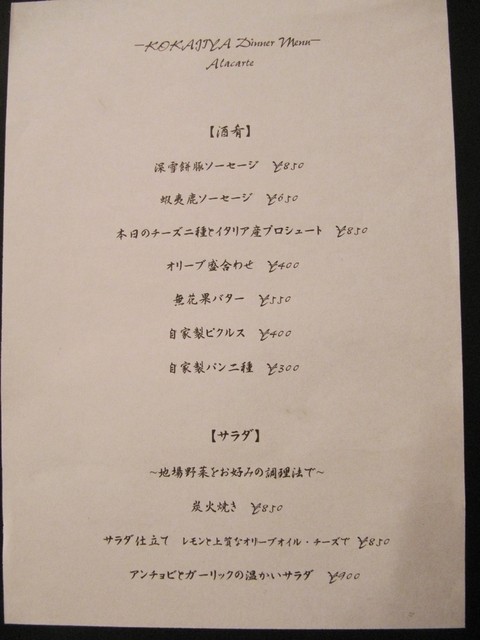 —KOKAJIYA Dinner Menu—
Alacarte
【酒肴】
深雪餅豚ソーセージ ¥850
蝦夷鹿ソーセージ ¥650
本日のチーズ二種とイタリア産プロシュート ¥850
オリーブ盛合わせ ¥400
無花果バター ¥550
自家製ピクルス ¥400
自家製パン二種 ¥300
【サラダ】
~地場野菜をお好みの調理法で~
炭火焼き ¥850
サラダ仕立て レモンと上質なオリーブオイル・チーズで ¥850
アンチョビとガーリックの温かいサラダ ¥900